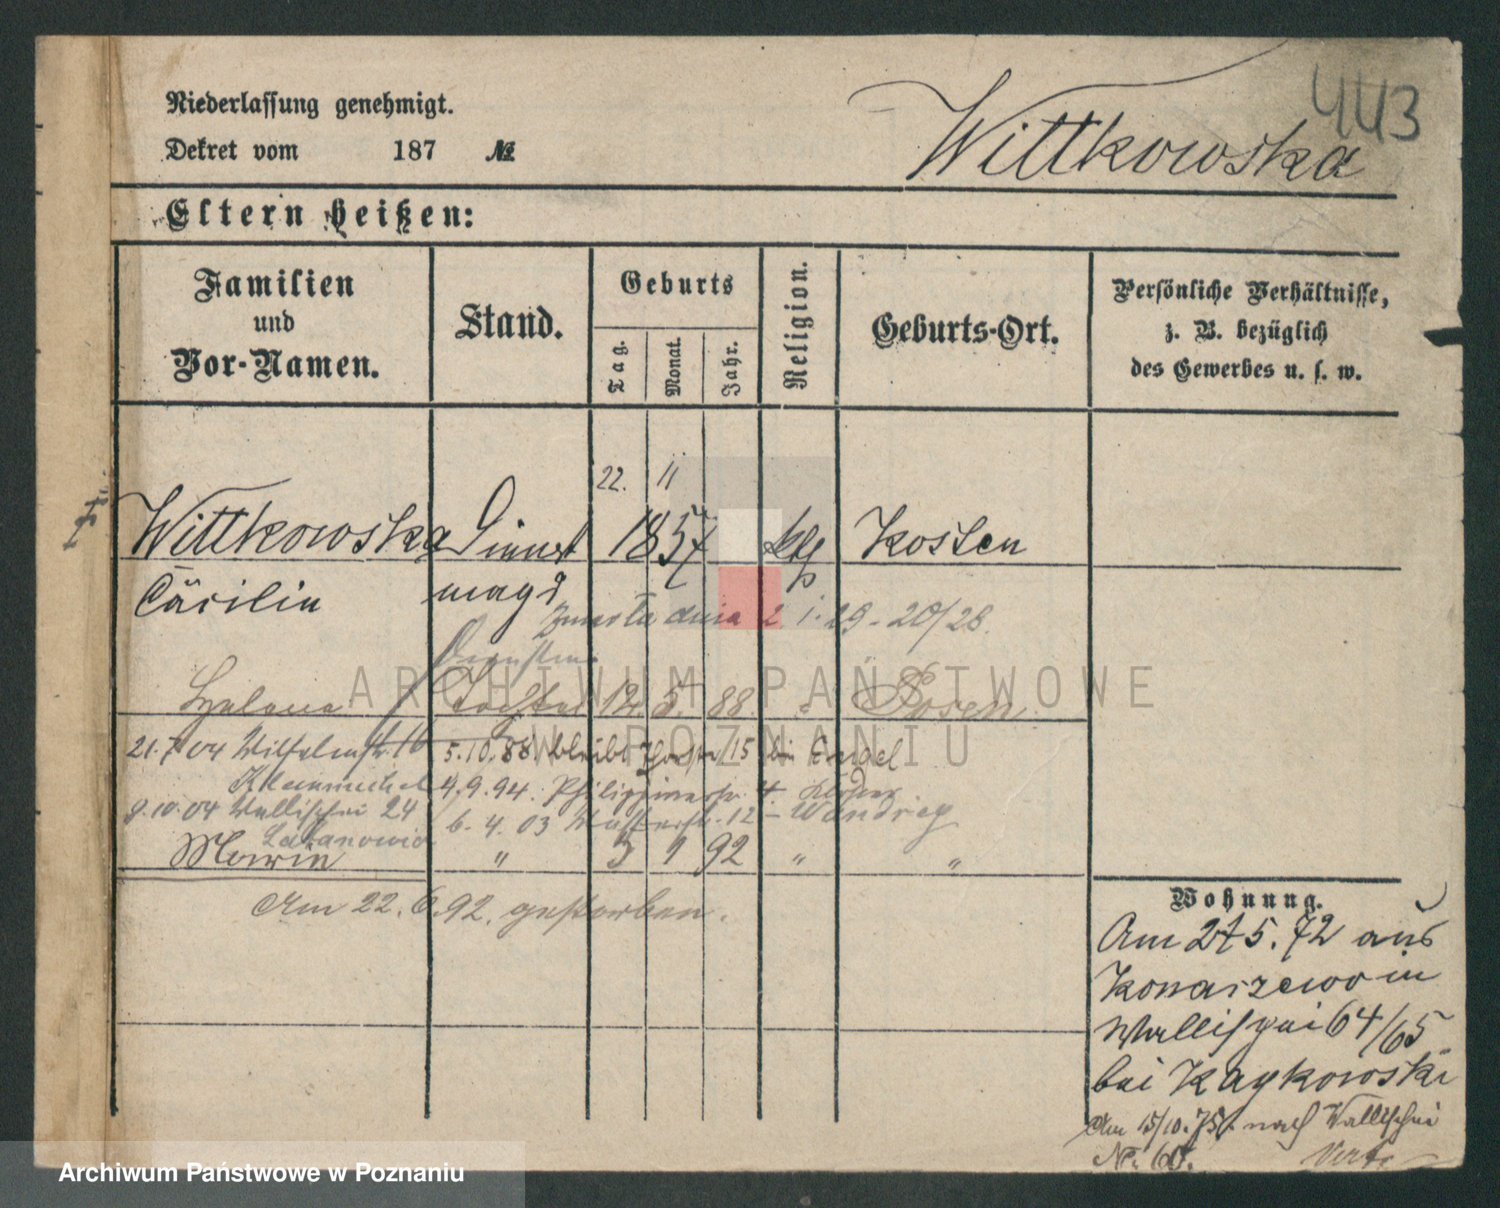 443
Niederlassung genehmigt.
Wittkowska
Dekret vom 187 №
Eltern heißen:
Familien und Vor-Namen.
Stand.
Geburts
Tag.
Monat.
Jahr.
Religion.
Geburts-Ort.
Persönliche Verhältnisse, z. B. bezüglich des Gewerbes u. s. w.
22. 11
Wittkowska Dienst 1857 kth Kosten
Cäcilia magd
Zmarła dnia 2.1.29 - 20/28.
Helena Tochter 12. 5. 88. Posen.
21.7 04 Wilhelmstr. 16 5.10.88. bleibt 15 bei
4.9.94. Philippinerstr. 4
9.10.04 Wallischei 24 6.4.03 12 -
Maria " 5 1 92 " "
Am 22.6.92. gestorben.
Wohnung.
Am 27 5. 72 aus
Konarzewo in
Wallischei 64/65
bei Kaykowski
Am 15/10.75. nach Wallischei
Nr. 60.
ARCHIWUM PAŃSTWOWE
W POZNANIU
Archiwum Państwowe w Poznaniu